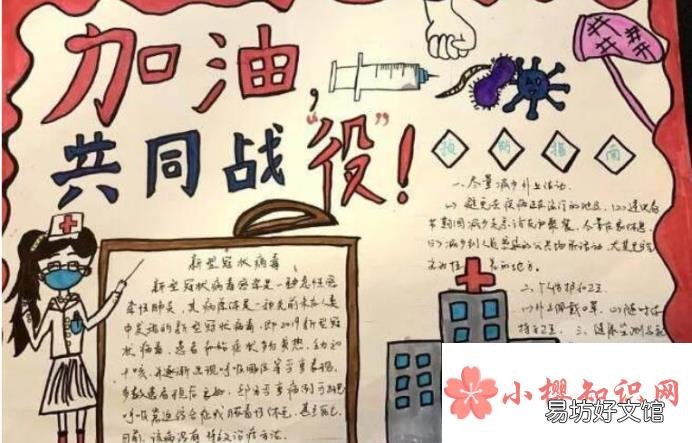 加油，
共同战"役"！
预防指南
一、尽量减少外出活动
(1) 避免去疾病正在流行的地区。(2) 建议春
节期间减少走亲访友和聚餐，尽量在家休息。
(3) 减少到人员密集的公共场所活动，尤其是
的地方。
二、个人防护和卫
(1) 外出佩戴口罩。(2) 随时保
持手卫生 三、健康监测与
新型冠状病毒
新型冠状病毒感染是一种急性感
染性肺炎，其病原体是一种先前未在人类
中发现的新型冠状病毒，即2019新型冠
状病毒，患者初始症状多为发热、乏力和
干咳，并逐渐出现呼吸困难等严重表现。
多数患者预后良好，部分严重病例可出现
呼吸窘迫综合征或脓毒症休克，甚至死亡。
目前，该病没有特效治疗方法。
小樱知识网
易坊好文馆